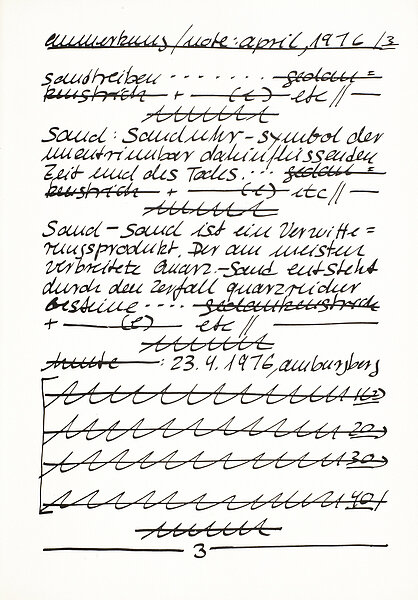 anmerkung/note: april, 1976 /3
sandtreiben ........ gedan=
kenstrich + (e) etc //
Sand: Sanduhr-symbol der
unentrinnbar dahinfliessenden
Zeit und des Todes... gedan=
kenstrich + (e) etc //
Sand-Sand ist ein Verwitte=
rungsprodukt. Der am meisten
verbreitete Quarz-Sand entsteht
durch den Zerfall quarzreicher
Gesteine .... gedankenstrich
+ (e) etc //
heute : 23.4.1976, amburgberg
20)
30)
40)
3